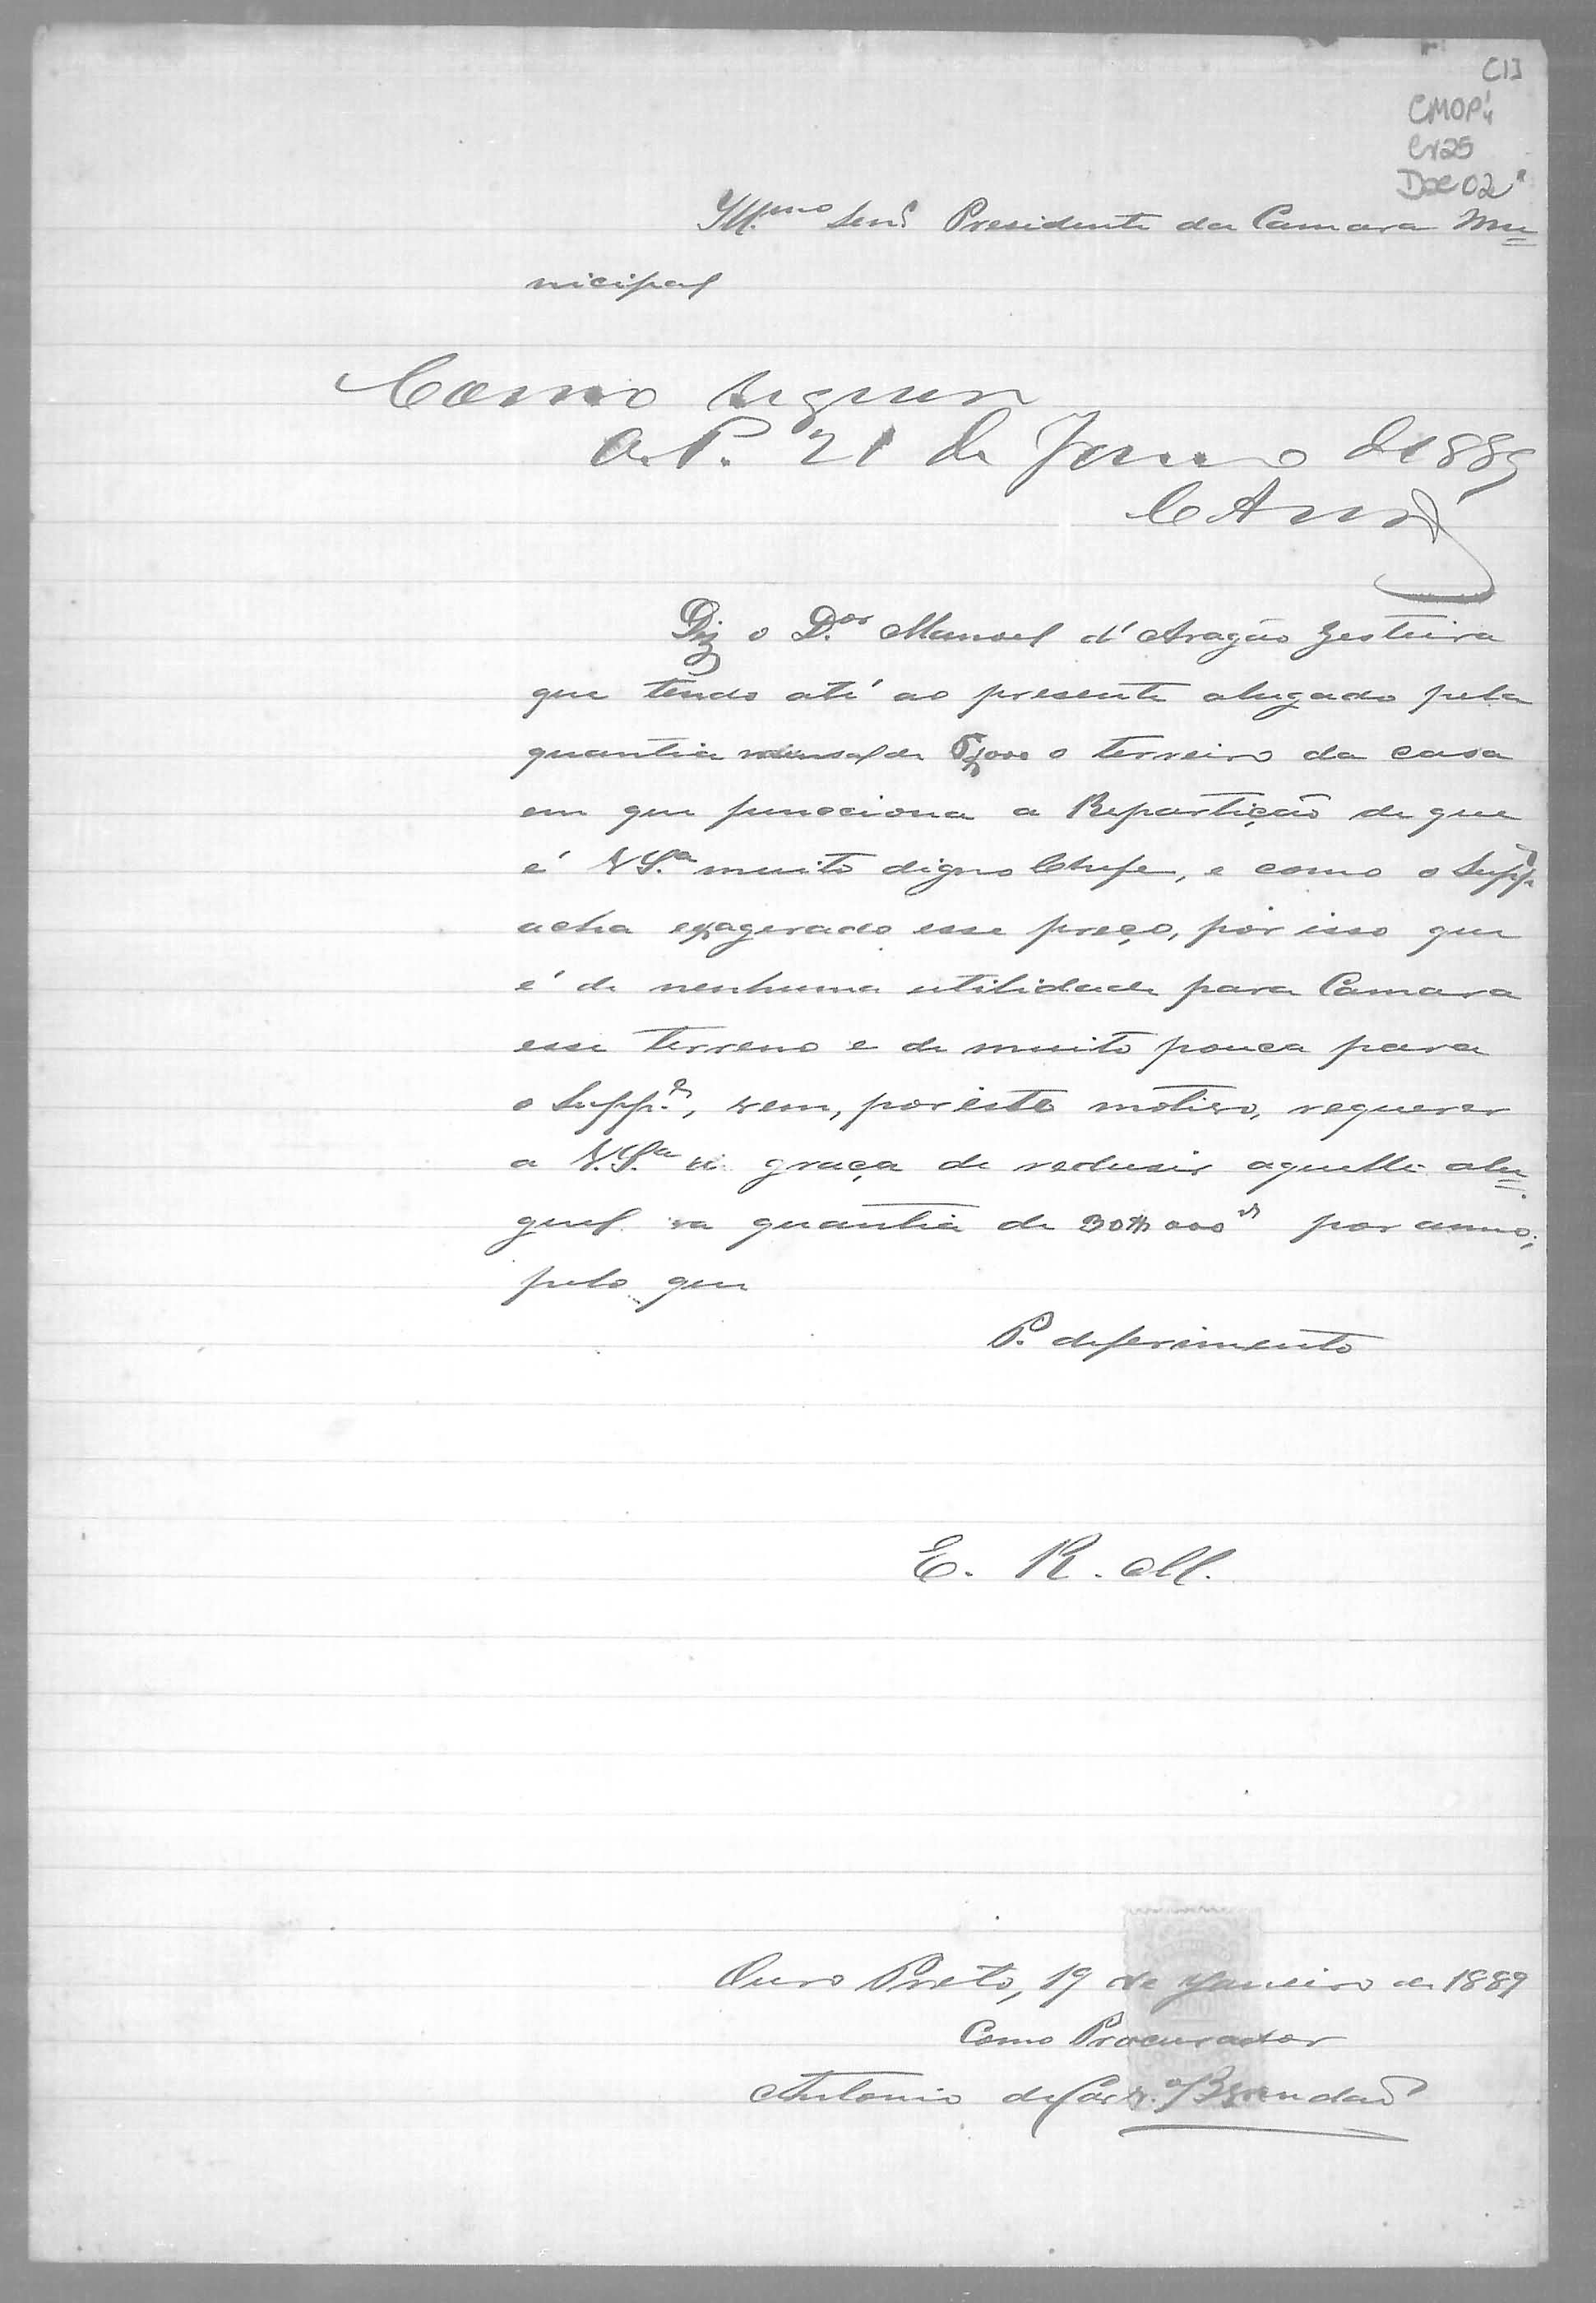 [1]
CMOP
Cx25
Doc 02
Ill.mo Senr. Presidente da Camara Mu=
nicipal
Como requer
O. P. 21 de Janeiro de 1889
Diz o D.or Manoel d'Aragão Gesteira
que tendo até ao presente alugado pela
quantia mensal de 5$000 o terreiro da casa
em que funcciona a Repartição de que
é V S.a muito digno Chefe, e como o Supp.e
acha exagerado esse preço, por isso que
é de nenhuma utilidade para Camara
esse terreno e de muito pouca para
o Supp.e, vem, por este motivo, requerer
a V. S.a a graça de redusir aquelle alu=
guel a quantia de 30$000rs por anno;
pelo que
P. deferimento
E. R. M.
Ouro Preto, 19 de Janeiro de 1889
Como Procurador
Antonio de Brandão